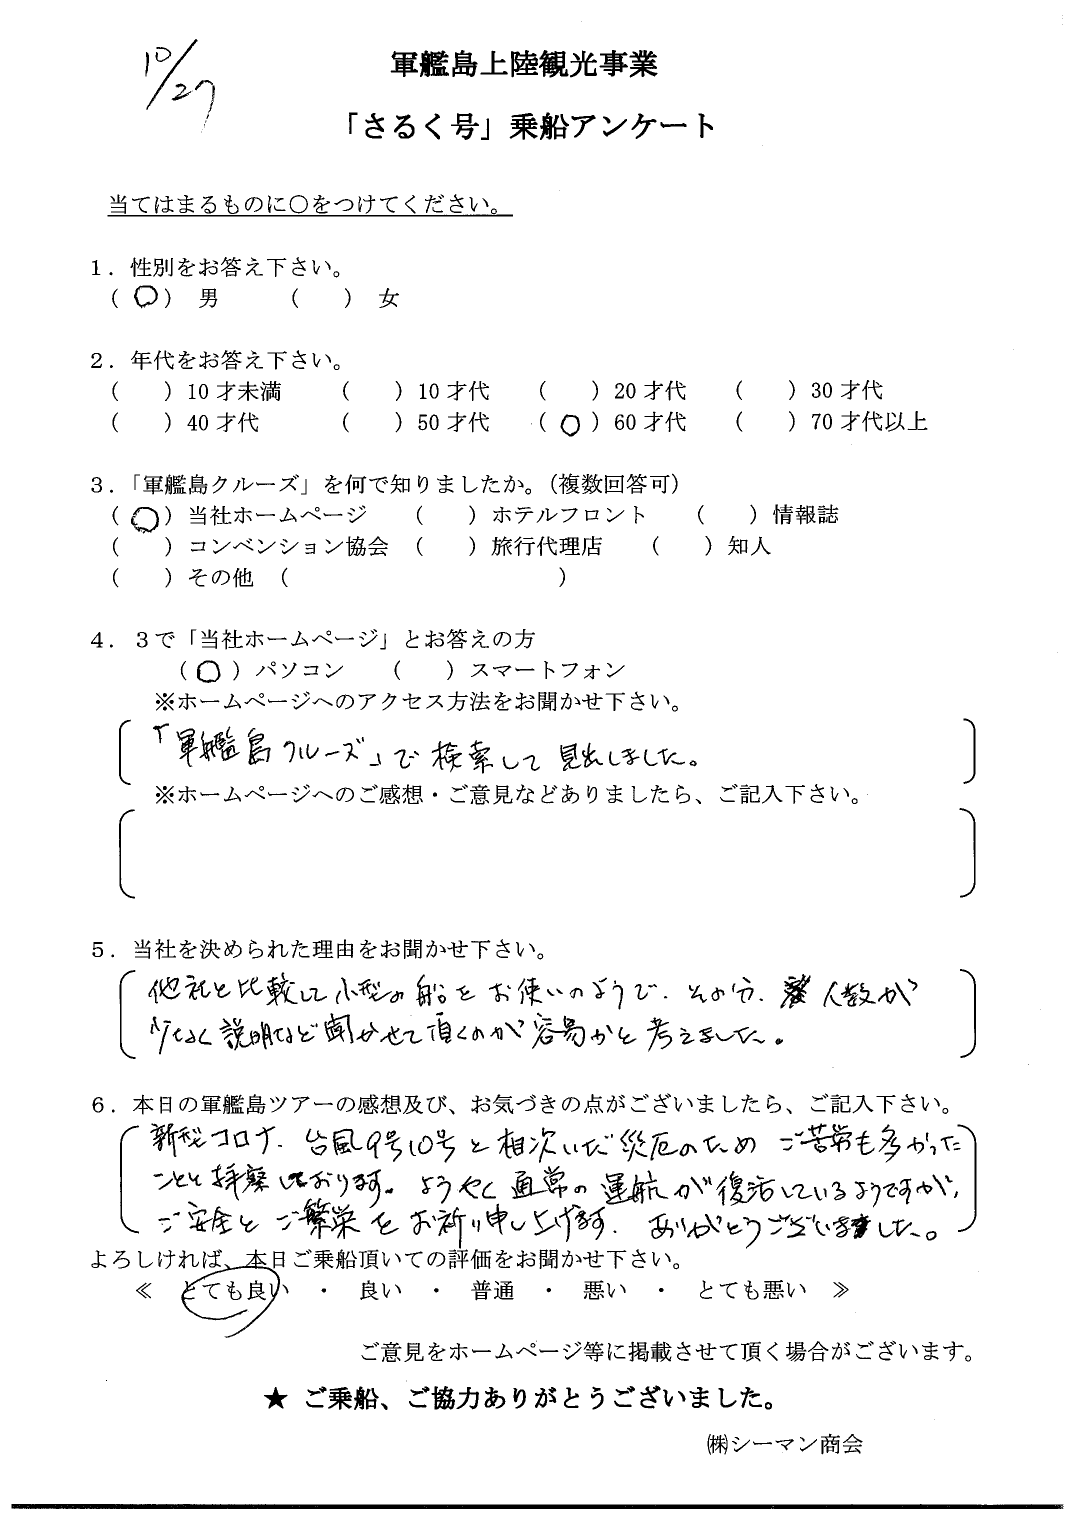 10/27
軍艦島上陸観光事業
「さるく号」乗船アンケート
当てはまるものに○をつけてください。
１．性別をお答え下さい。
（ ○ ） 男 （ ） 女
２．年代をお答え下さい。
（ ）10才未満 （ ）10才代 （ ）20才代 （ ）30才代
（ ）40才代 （ ）50才代 （ ○ ）60才代 （ ）70才代以上
３．「軍艦島クルーズ」を何で知りましたか。（複数回答可）
（ ○ ）当社ホームページ （ ）ホテルフロント （ ）情報誌
（ ）コンベンション協会 （ ）旅行代理店 （ ）知人
（ ）その他 （ ）
４．３で「当社ホームページ」とお答えの方
（ ○ ）パソコン （ ）スマートフォン
※ホームページへのアクセス方法をお聞かせ下さい。
「軍艦島クルーズ」で検索して見出しました。
※ホームページへのご感想・ご意見などありましたら、ご記入下さい。
５．当社を決められた理由をお聞かせ下さい。
他社と比較して小型の船をお使いのようで、その分、人数が
少なく説明など聞かせて頂くのが容易かと考えました。
６．本日の軍艦島ツアーの感想及び、お気づきの点がございましたら、ご記入下さい。
新型コロナ、台風9号10号と相次いだ災厄のためご苦労も多かった
ことと拝察しております。ようやく通常の運航が復活しているようですが、
ご安全とご繁栄をお祈り申し上げます。ありがとうございました。
よろしければ、本日ご乗船頂いての評価をお聞かせ下さい。
≪ とても良い ・ 良い ・ 普通 ・ 悪い ・ とても悪い ≫
ご意見をホームページ等に掲載させて頂く場合がございます。
★ ご乗船、ご協力ありがとうございました。
㈱シーマン商会